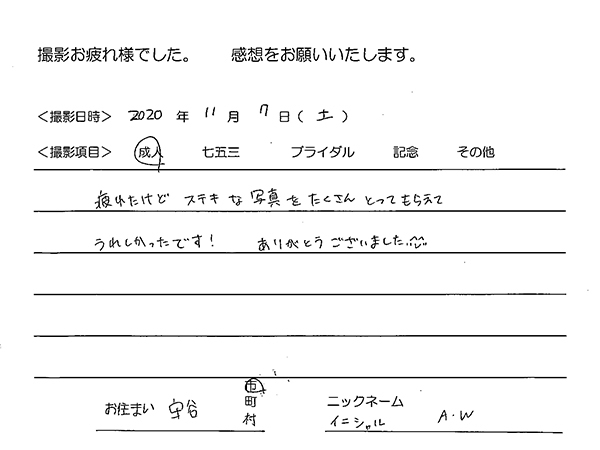 撮影お疲れ様でした。　感想をお願いいたします。
＜撮影日時＞ 2020 年 11 月 7 日（ 土 ）
＜撮影項目＞ 成人 七五三 ブライダル 記念 その他
疲れたけど ステキな写真をたくさんとってもらえて
うれしかったです！ ありがとうございました
市
お住まい 守谷 町 ニックネーム
村 イニシャル A.W